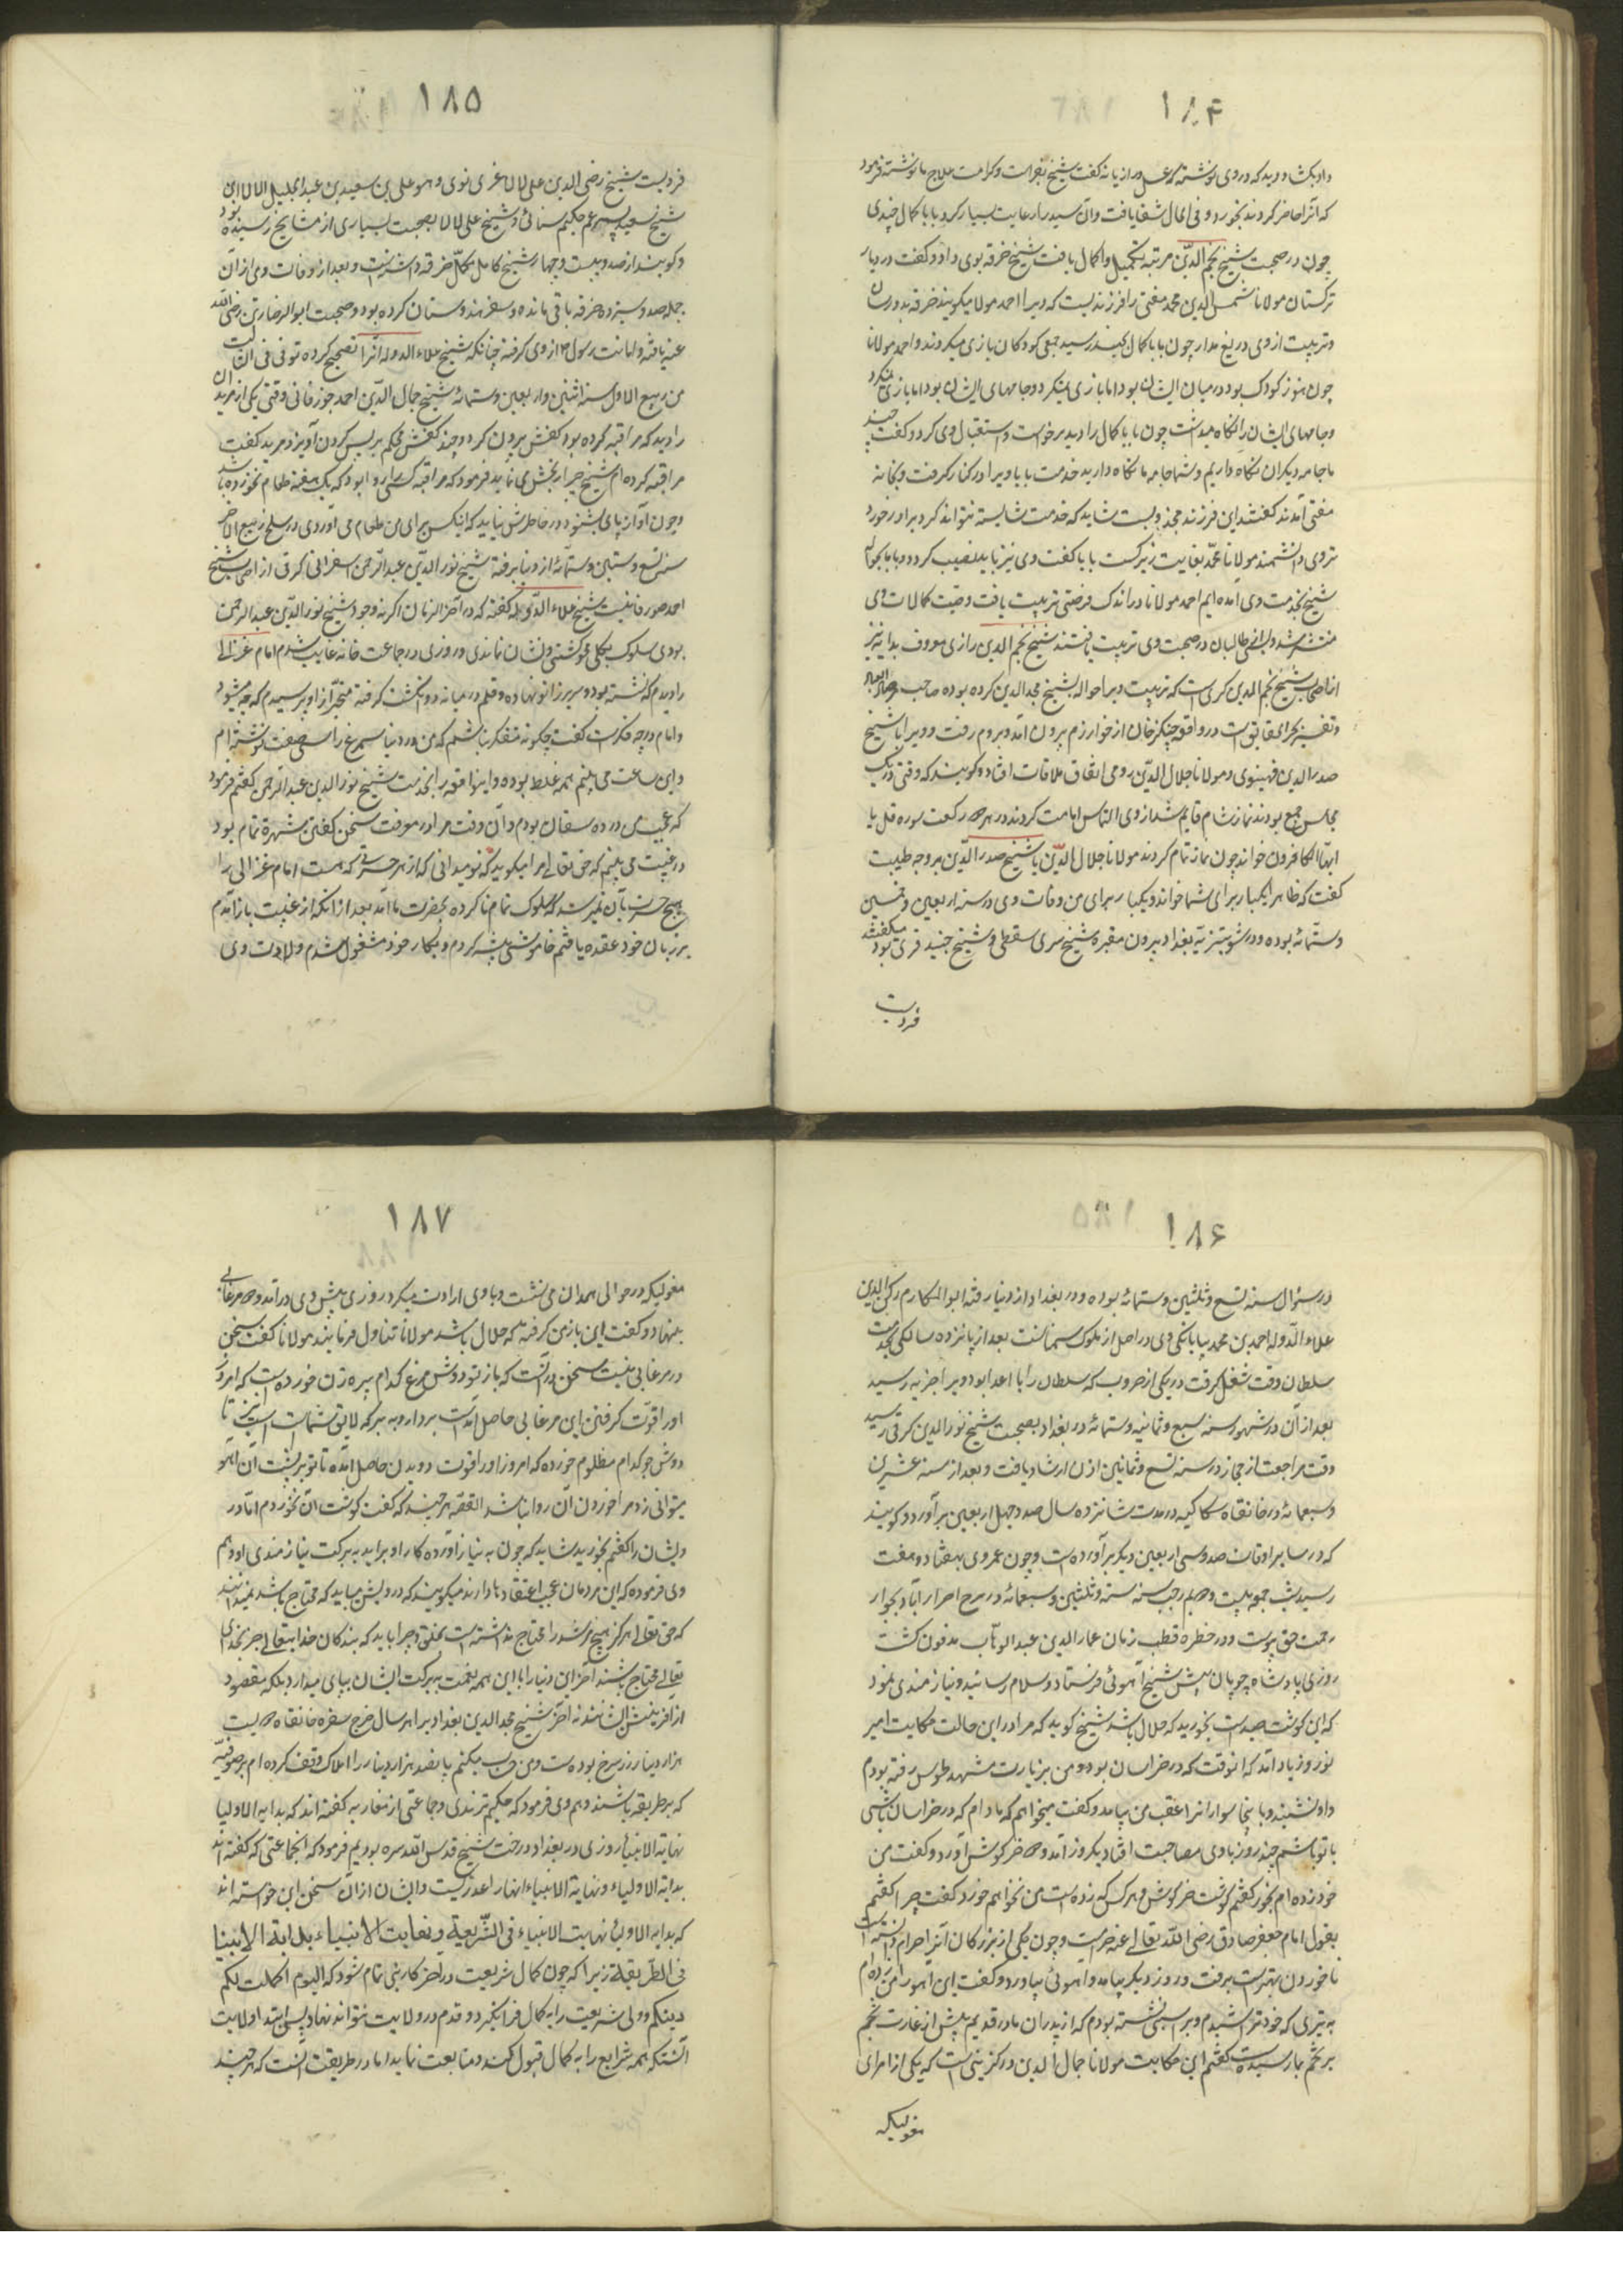 ۱۸۴
داد بکشاد و دید که در وی نوشته که عسل و رازیانه گفت شیخ بفراست و کرامت علاج ما نوشته فرمود
که آنرا حاضر کردند بخورد و فی الحال شفا یافت و آن سید را رعایت بسیار کرد بابا کمال جندی
چون در صحبت شیخ نجم الدین مرتبه تکمیل و اکمال یافت شیخ خرقه بوی داد و گفت در دیار
ترکستان مولانا شمس الدین محمد مفتی را فرزندیست که ویرا احمد مولانا میگویند خرقه بدو رسان
و تربیت از وی دریغ مدار چون بابا کمال بجند رسید جمعی کودکان بازی میکردند و احمد مولانا
چون هنوز کودک بود در میان ایشان بود اما بازی نمیکرد و جامهای ایشان بود اما بازی نمیکرد
و جامهای ایشان را نگاه میداشت چون بابا کمال را دید برخواست و استقبال وی کرد و گفت چند
ما جامه دیگران نگاه داریم و شما جامه ما نگاه دارید خدمت بابا ویرا در کنار گرفت و بخانه
مفتی آمدند گفتند این فرزند مجذوبست شاید که خدمت شایسته نتواند کرد برادر خورد
تر وی دانشمند مولانا محمد بغایت زیرکست بابا گفت وی نیز با بد نصیب کردد و بابا بحواله
شیخ بخدمت وی آمده ایم احمد مولانا در اندک فرصتی تربیت یافت وصیت کمالات وی
منتشر شد و بسی طالبان در صحبت وی تربیت یافتند شیخ نجم الدین رازی معروف بدایه نیز
از اصحاب شیخ نجم الدین کبری است که تربیت ویرا حواله شیخ مجد الدین کرده بوده صاحب مرصاد العباد
و تفسیر بحر الحقایق است در واقعه چنکیز خان از خوارزم بیرون آمد و بروم رفت و ویرا با شیخ
صدر الدین قونیوی و مولانا جلال الدین رومی اتفاق ملاقات افتاد و گویند که وقتی در یک
مجلس جمع بودند نماز شام قایم شد از وی التماس امامت کردند در هر دو رکعت سوره قل یا
ایها الکافرون خواند چون نماز تمام کردند مولانا جلال الدین با شیخ صدر الدین بر وجه طیبت
گفت که ظاهرا یکبار برای شما خواند و یکبار برای من وفات وی در سنه اربعین و خمسین
و ستمائه بوده و در شونیزیه بغداد بیرون مقبره شیخ سری سقطی و شیخ جنید قبری بود میگفتند
فردیت
۱۸۵
فردیست شیخ رضی الدین علی لالا غزنوی و هو علی بن سعید بن عبد الجلیل الالا این
شیخ سعید پسر عم حکیم سنائی و شیخ علی لالا بصحبت بسیاری از مشایخ رسیده بود
و گویند از صد و بیست و چهار شیخ کامل مکمل خرقه داشته است و بعد از وفات وی از آن
جمله صد و سیزده خرقه باقی مانده و سفر هندوستان کرده بود و صحبت ابو الرضا رتن رضی الله
عنه یافته و امانت رسول ص از وی گرفته چنانکه شیخ علاء الدوله آنرا تصحیح کرده توفی فی الثالث
من ربیع الاول سنه اثنین و اربعین و ستمائه شیخ جمال الدین احمد جوزفانی وقتی یکی از مریدان
را دید که مراقبه کرده بود کفش بیرون کرد و چند کفش محکم بر پس گردن آویزد مرید گفت
مراقبه کرده ام شیخ چرا رنجش می نماید فرمود که مراقبه کسی را روا بود که یک هفته طعام نخورده باشد
و چون آواز پای بشنود در خاطرش نیاید که اینکس برای من طعام می آورد وی در سلخ ربیع الاخر
سنه تسع و ستین و ستمائه از دنیا برفته شیخ نور الدین عبد الرحمن اسفراینی کسرقی از اصحاب شیخ
احمد جورفانیست شیخ علاء الدوله گفته که در آخر الزمان اگر نه وجود شیخ نور الدین عبد الرحمن
بودی سلوک بکلی محو گشتی و نشان نماندی و روزی در جماعت خانه غایب شدم امام غزالی
را دیدم که نشسته بود و سر بر زانو نهاده و قلم در میانه دو انگشت گرفته متحیر از او پرسیدم که چه میشود
و امام در چه فکرست گفت چگونه متفکر نباشم که من در دنیا سیمرغ را سی صفت نوشته ام
و این ساعت می بینم همه غلط بوده و این واقعه را بخدمت شیخ نور الدین عبد الرحمن گفتم فرمود
که عجب من در ده سقان بودم و آن وقت مرا در معرفت سخن گفتن شهرة تمام بود
در غیبت می بینم که حق تعالی مرا میگوید که تو میدانی که از هر حسرتی که هست امام غزالی را
هیچ حسرت بآن نمیرسد که سلوک تمام ناکرده بحضرت ما آمد بعد از آنکه از غیبت باز آمدم
بر زبان خود عقده یافتم خاموشی پیشه کردم و بکار خود مشغول شدم ولادت وی
۱۸۶
در شوال سنه تسع و ثلثین و ستمائه بوده و در بغداد از دنیا رفته ابو المکارم رکن الدین
علاء الدوله احمد بن محمد بیابانکی وی در اصل از ملوک سمنانست بعد از پانزده سالگی بخدمت
سلطان وقت شغل گرفت در یکی از حروب که سلطان را با اعدا بود ویرا جذبه رسید
بعد از آن در شهور سنه سبع و ثمانیه و ستمائه در بغداد بصحبت شیخ نور الدین کسرقی رسید
وقت مراجعت از حجاز در سنه تسع و ثمانین اذن ارشاد یافت و بعد از سنه عشرین
و سبعمائه در خانقاه سکاکیه در مدت شانزده سال صد و چهل اربعین برآورد و گویند
که در سایر اوقات صد و سی اربعین دیگر برآورده است و چون عمر وی بهفتاد و هفت
رسید شب جمعه بیست و دوم رجب سنه ستة و ثلثین و سبعمائه در برج احرار آباد بجوار
رحمت حق پیوست و در خطره قطب زمان عماد الدین عبد الوهاب مدفون گشت
روزی پادشاه چوپان پیش شیخ آهوئی فرستاد و سلام رسانید و نیازمندی نمود
که این گوشت صیدست بخورید که حلال باشد شیخ گوید که مرا در این حالت حکایت امیر
نوروز یاد آمد که آنوقت که در خراسان بود و من بزیارت مشهد طوس رفته بودم
داد نشنیدند و با پنجاه سوار از عقب من بیامد و گفت میخواهم که مادام که در خراسان باشی
با تو باشم چند روز با وی مصاحبت افتاد یکروز آمد و دو خرگوش آورد و گفت من
خود زده ام بخور گفتم گوشت خرگوش هر کس که زده است من نخواهم خورد گفت چرا گفتم
بقول امام جعفر صادق رضی الله تعالی عنه حرامست و چون یکی از بزرگان آنرا حرام دانسته است
ناخوردن بهترست برفت و روز دیگر بیامد و آهوئی بیاورد و گفت این آهو را من زده ام
به تیری که خود تراشیدم و بر اسبی نشسته بودم که از پدران ما در قدیم پیش از غارت تخم
بر تخم بما رسیدست گفتم این حکایت مولانا جمال الدین درگزینی است که یکی از امرای
مغولیکه
۱۸۷
مغولیکه در حوالی همدان می نشست و با وی ارادت میکرد روزی پیش وی درآمد و دو مرغابی
بنهاد و گفت این باز من گرفته که حلال باشد مولانا تناول فرمایند مولانا گفت سخن
در مرغابی نیست سخن در آنست که باز تو دوش مرغ کدام پیره زن خورده است که امروز
او را قوت گرفتن این مرغابی حاصل آمدست بردار و ببر که لایق شماست اسب نیز تا
دوش جو کدام مظلوم خورده که امروز او را قوت دویدن حاصل آمده تا تو بر پشت آن آهو
میتوانی زد مرا خوردن آن روا نباشد القصه هر چند که گفت گوشت آن نخوردم اما در
ویشان را گفتم بخورید شاید که چون به نیاز آورده کار او برآید به برکت نیازمندی او و هم
وی فرموده که این مردمان عجب اعتقادها دارند میگویند که درویش میباید که محتاج باشد نمیدانند
که حق تعالی هرگز هیچ مرشد را محتاج نداشته است بخلق و چرا باید که بندگان خدایتعالی جز بخدای
تعالی محتاج باشند آخر این دنیا را با این همه نعمت ببرکت ایشان بپای میدارد بلکه مقصود
از آفرینش ایشانند نه آخر شیخ مجد الدین بغدادی را هر سال خرج سفره خانقاه دویست
هزار دینار زر سرخ بودست و من حساب میکنم پانصد هزار دینار را املاک وقف کرده ام بر صوفیه
که بر طریقه باشند و هم وی فرمود که حکیم ترمذی و جماعتی از مغاربه گفته اند که بدایه الاولیا
نهایة الانبیا روزی در بغداد در خدمت شیخ قدس الله سره بودیم فرمود که انجماعتی که گفته اند
بدایة الاولیاء و نهایة الانبیاء انها را عذریست و ایشان از آن سخن این خواسته اند
که بدایه الاولیا نهایت الانبیاء فی الشریعة و نهایت الانبیاء بدایة الانبیا
فی الطریقة زیرا که چون کمال شریعت در آخر کار نبی تمام شود که الیوم اکملت لکم
دینکم و ولی شریعت را به کمال فرا نگیرد و قدم در ولایت نتواند نهاد پس ابتدا ولایت
آنستکه همه شرایع را به کمال قبول کند و متابعت نماید اما در طریقت آنست که هر چند